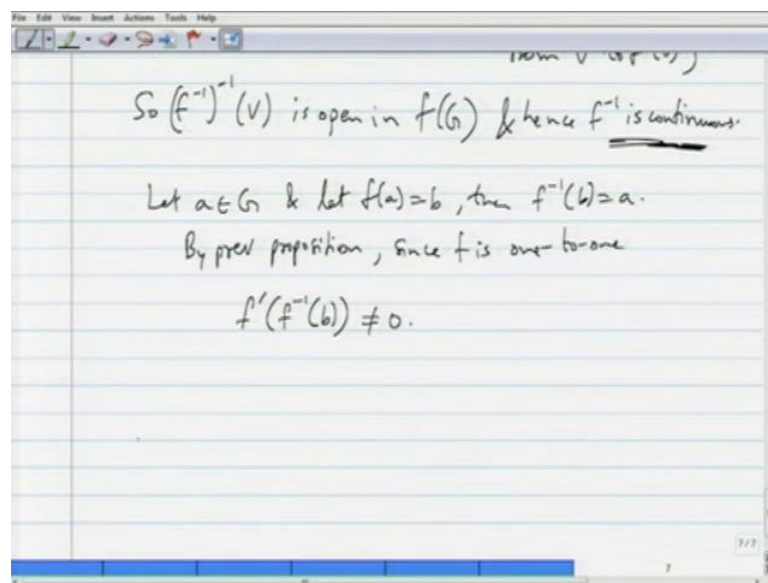 File Edit View Insert Actions Tools Help
So (f⁻¹)⁻¹(V) is open in f(G) & hence f⁻¹ is continuous.
Let a ∈ G & let f(a) = b, then f⁻¹(b) = a.
By prev proposition, since f is one-to-one
f'(f⁻¹(b)) ≠ 0.
7/7
7